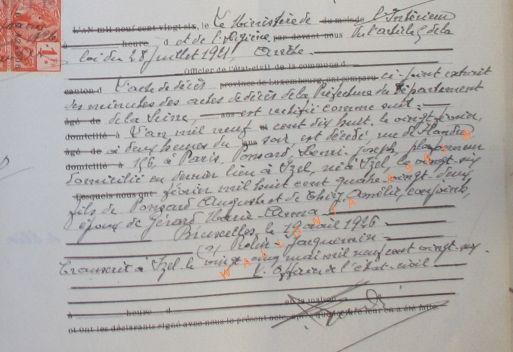 L'AN mil neuf cent vingt six, le Le Ministère de du mois de l'Intérieur
à heure, et de l'Hygiène, par devant nous Vu l'article 5 de la
loi du 28 juillet 1921, Arrête:
Officier de l'état-civil de la commune d
canton d L'acte de décès province de Luxembourg, ont comparu ci-joint extrait
des minutes des actes de décès de la Préfecture du Département
âgé de de la Seine, ans est certifié comme suit:
domicilié à L'an mil neuf cent dix huit, le vingt février,
âgé de à deux heures du soir, est décédé rue de Flandre
domicilié à 166, à Paris, Ponsard Henri Joseph, plafonneur
domicilié en dernier lieu à Izel, né à Izel, le vingt six
lesquels nous ont février mil huit cent quatre vingt deux,
fils de Ponsard Auguste et de Amélie, conjoints,
époux de Gérard Marie Anna.
Bruxelles, le 29 avril 1926
(s) Rolin-Jaequemin
Transcrit à Izel le vingt cinq mai mil neuf cent vingt six
L'Officier de l'état civil
à heure d en la maison
et ont les déclarants signé avec nous le présent acte, après que lecture leur en a été faite.